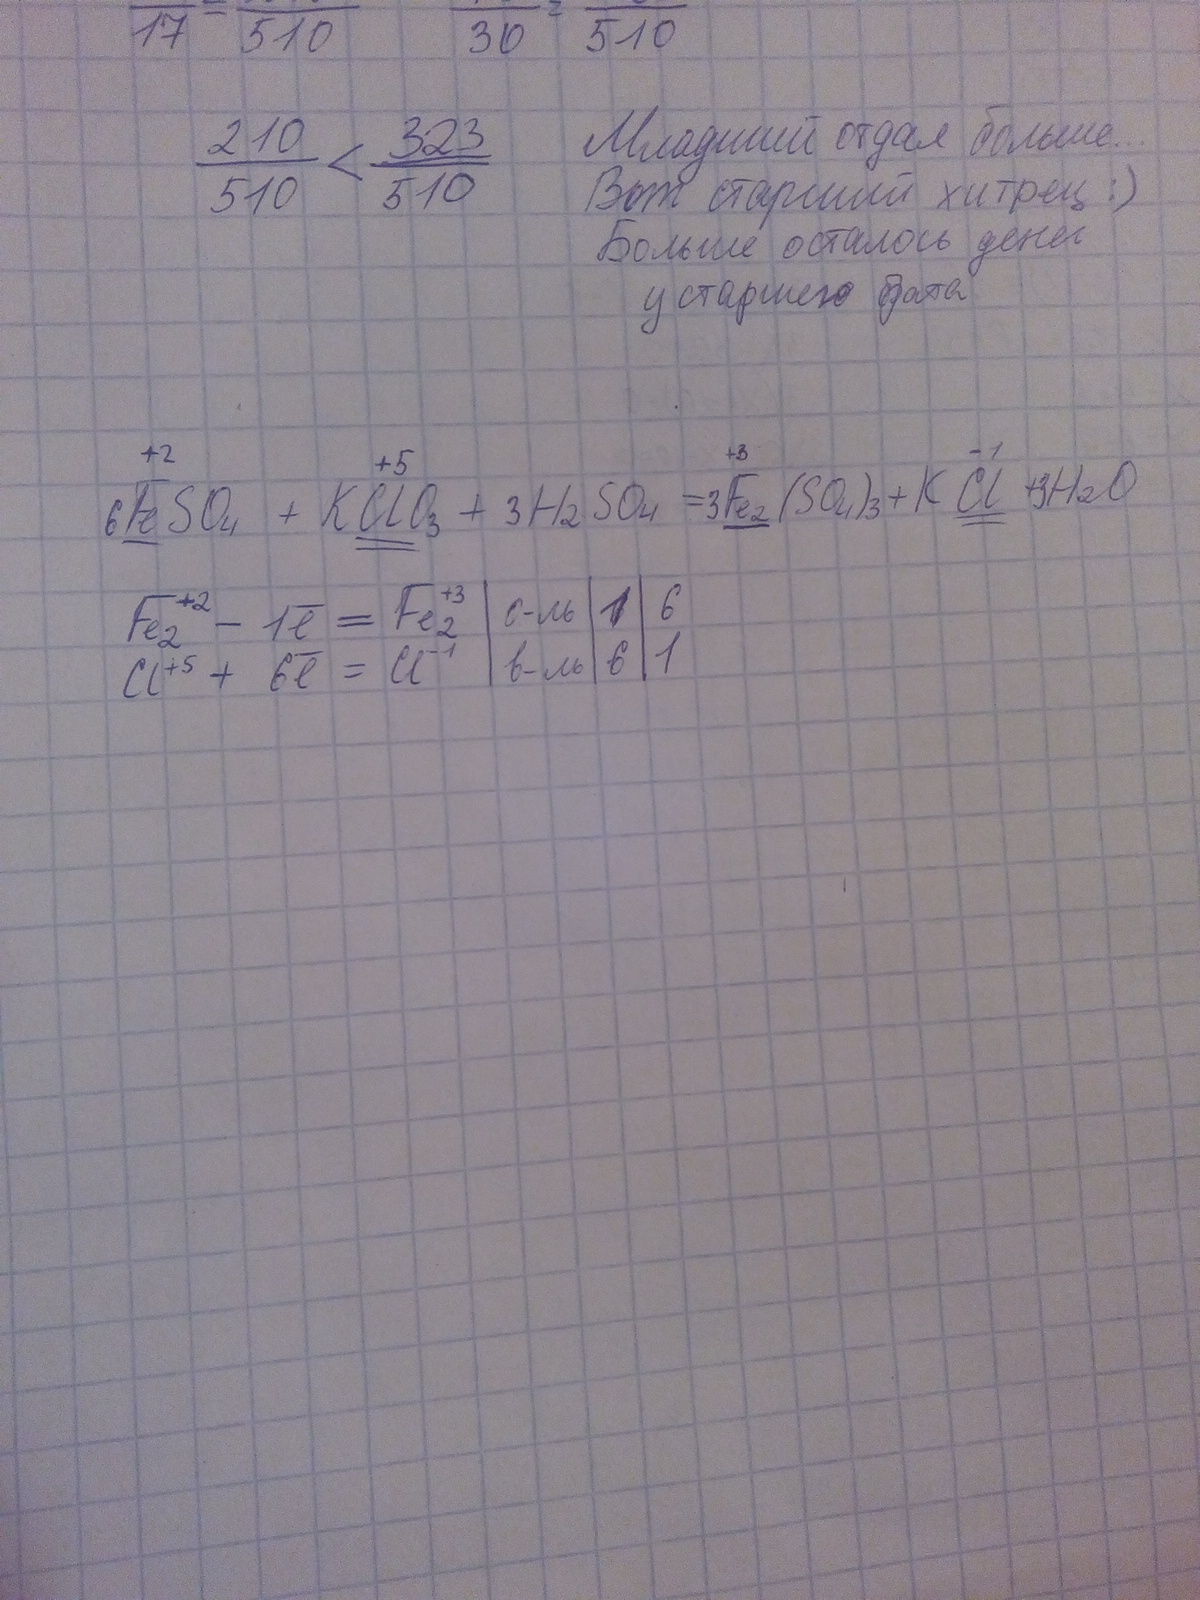 17 = 510 30 = 510
210/510 < 323/510
Младший отдал больше...
Вот старший хитрец :)
Больше осталось денег
у старшего брата
+2 +5 +3 -1
6FeSO₄ + KClO₃ + 3H₂SO₄ = 3Fe₂(SO₄)₃ + KCl + 3H₂O
Fe₂⁺² - 1e̅ = Fe₂⁺³ | с-ль | 1 | 6
Cl⁺⁵ + 6e̅ = Cl⁻¹ | в-ль | 6 | 1